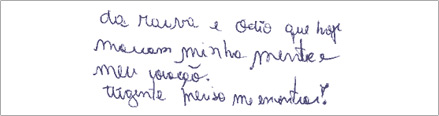 da raiva e ódio que hoje
movam minha mente e
meu coração.
Urgente preciso me encontrar!